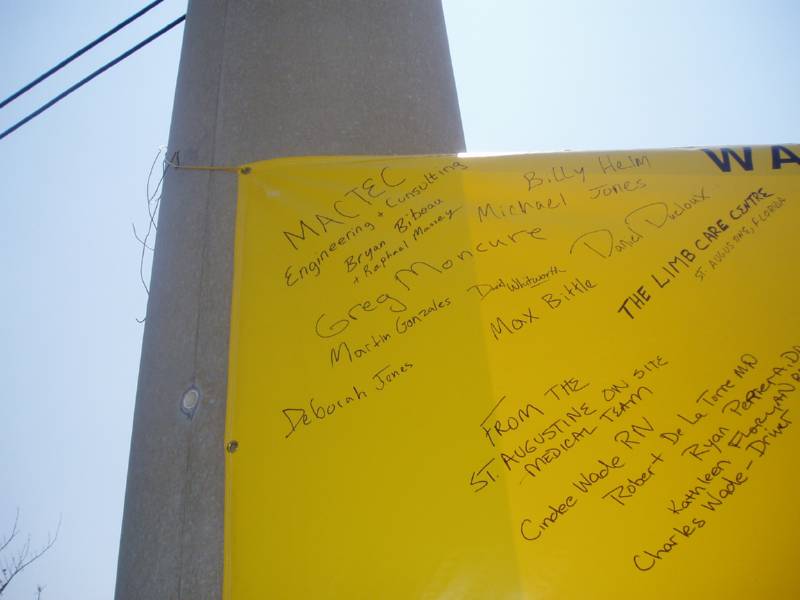 WA
MACTEC
Engineering + Consulting
Bryan Bibeau
+ Raphael Massey
Billy Helm
Michael Jones
Greg Moncure
Daniel Ducloux
Martin Gonzales
David Whitworth
Max Bittle
Deborah Jones
THE LIMB CARE CENTRE
ST. AUGUSTINE, FLORIDA
FROM THE
ST. AUGUSTINE ON SITE
MEDICAL TEAM
Cindee Wade RN
Robert De La Torre MD
Ryan
Kathleen FLORYAN
Charles Wade - Driver